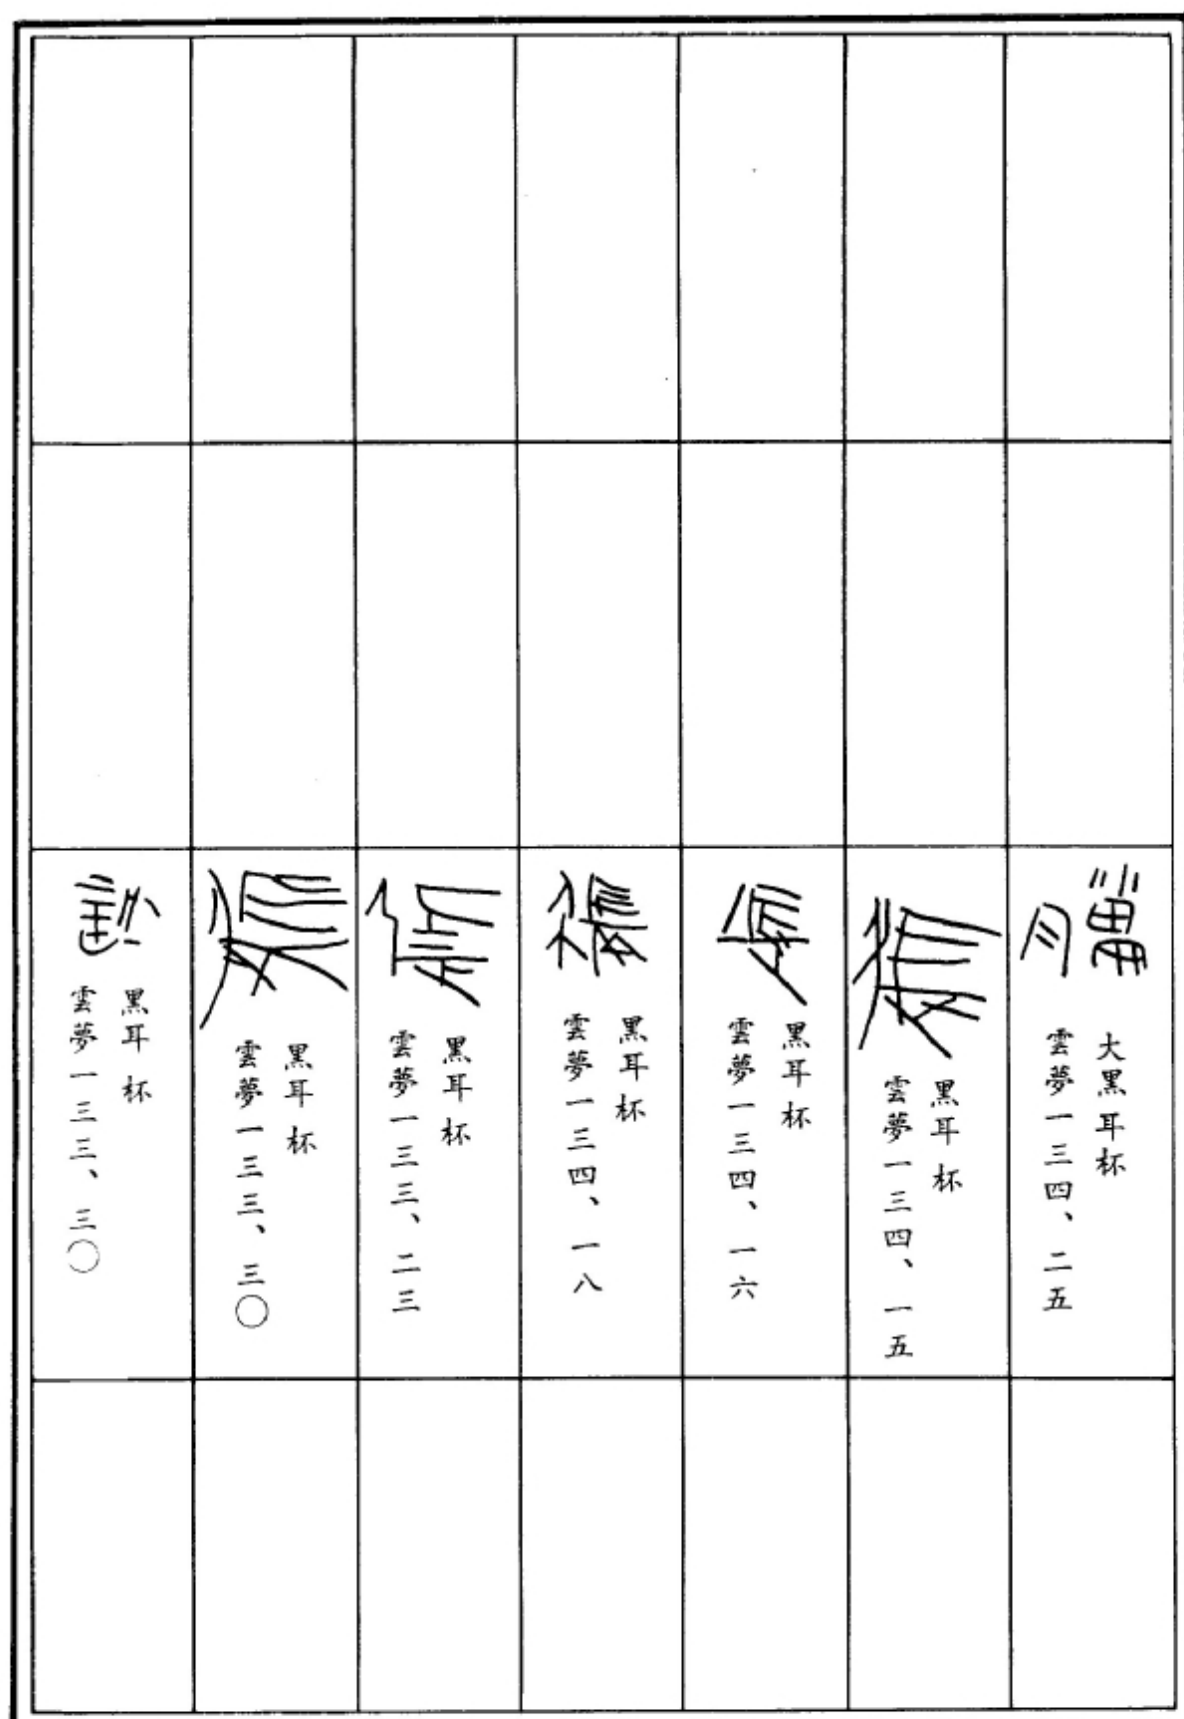 大黑耳杯
雲夢一三四、二五
黑耳杯
雲夢一三四、一五
黑耳杯
雲夢一三四、一六
黑耳杯
雲夢一三四、一八
黑耳杯
雲夢一三三、二三
黑耳杯
雲夢一三三、三〇
黑耳杯
雲夢一三三、三〇